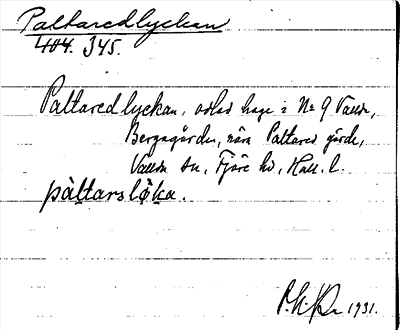 Paltaredlyckan
404. 345.
Paltaredlyckan, odlad hage i No 9 Vallda,
Bergagården, nära Paltared gärde,
Vallda sn, Fjäre hd, Hall. l.
pàltarslø̨ka.
1931.